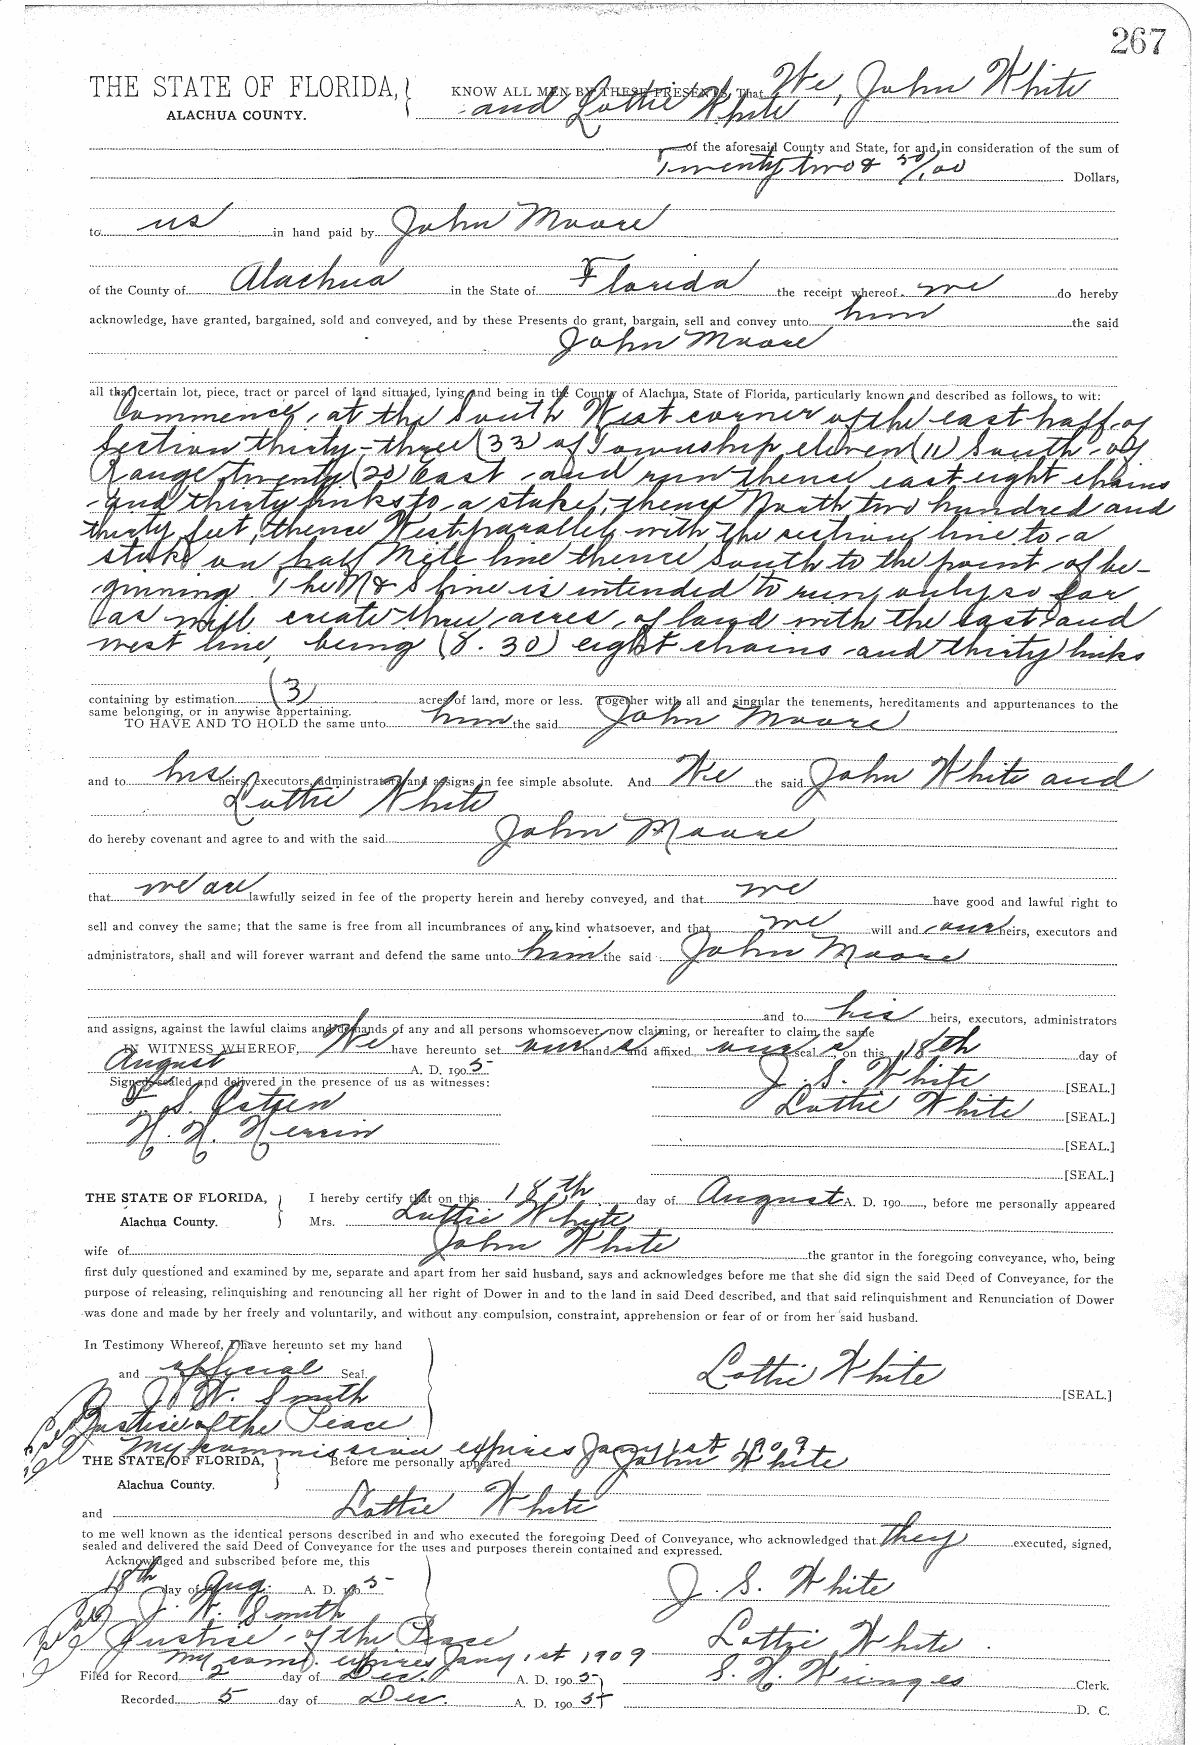 267
THE STATE OF FLORIDA, KNOW ALL MEN BY THESE PRESENTS, That We, John White
ALACHUA COUNTY. and Lottie White
of the aforesaid County and State, for and in consideration of the sum of
Twenty two & 50/100 Dollars,
to us in hand paid by John Moore
of the County of Alachua in the State of Florida the receipt whereof we do hereby
acknowledge, have granted, bargained, sold and conveyed, and by these Presents do grant, bargain, sell and convey unto him the said
John Moore
all that certain lot, piece, tract or parcel of land situated, lying and being in the County of Alachua, State of Florida, particularly known and described as follows, to wit:
Commence, at the South West corner of the east half of
Section thirty-three (33) of Township eleven (11) South of
Range twenty (20) East and run thence east eight chains
and thirty links to a stake, thence North two hundred and
thirty feet, thence West parallel with the section line to a
stake on half Mile line thence South to the point of be-
ginning. The N & S line is intended to run only so far
as will create three acres of land with the east and
west line, being (8.30) eight chains and thirty links
containing by estimation (3) acres of land, more or less. Together with all and singular the tenements, hereditaments and appurtenances to the
same belonging, or in anywise appertaining.
TO HAVE AND TO HOLD the same unto him the said John Moore
and to his heirs, executors, administrators and assigns in fee simple absolute. And We the said John White and
Lottie White
do hereby covenant and agree to and with the said John Moore
that we are lawfully seized in fee of the property herein and hereby conveyed, and that we have good and lawful right to
sell and convey the same; that the same is free from all incumbrances of any kind whatsoever, and that we will and our heirs, executors and
administrators, shall and will forever warrant and defend the same unto him the said John Moore
and to his heirs, executors, administrators
and assigns, against the lawful claims and demands of any and all persons whomsoever, now claiming, or hereafter to claim the same
IN WITNESS WHEREOF, We have hereunto set our hands and affixed our seals, on this 18th day of
August A. D. 1905
Signed, sealed and delivered in the presence of us as witnesses: J. S. White [SEAL.]
F. S. Lottie White [SEAL.]
[SEAL.]
[SEAL.]
THE STATE OF FLORIDA, I hereby certify that on this 18th day of August A. D. 190, before me personally appeared
Alachua County. Mrs. Lottie White
wife of John White the grantor in the foregoing conveyance, who, being
first duly questioned and examined by me, separate and apart from her said husband, says and acknowledges before me that she did sign the said Deed of Conveyance, for the
purpose of releasing, relinquishing and renouncing all her right of Dower in and to the land in said Deed described, and that said relinquishment and Renunciation of Dower
was done and made by her freely and voluntarily, and without any compulsion, constraint, apprehension or fear of or from her said husband.
In Testimony Whereof, I have hereunto set my hand
and official Seal. Lottie White [SEAL.]
J. W. Smith
Justice of the Peace
My commission expires Jany 1st 1909
THE STATE OF FLORIDA, Before me personally appeared John White
Alachua County.
and Lottie White
to me well known as the identical persons described in and who executed the foregoing Deed of Conveyance, who acknowledged that they executed, signed,
sealed and delivered the said Deed of Conveyance for the uses and purposes therein contained and expressed.
Acknowledged and subscribed before me, this
18th day of Aug. A. D. 1905 J. S. White
J. W. Smith
Justice of the Peace Lottie White
My com. expires Jany 1st 1909
Filed for Record 2 day of Dec. A. D. 1905 S. H. Wienges Clerk.
Recorded 5 day of Dec. A. D. 1905 D. C.